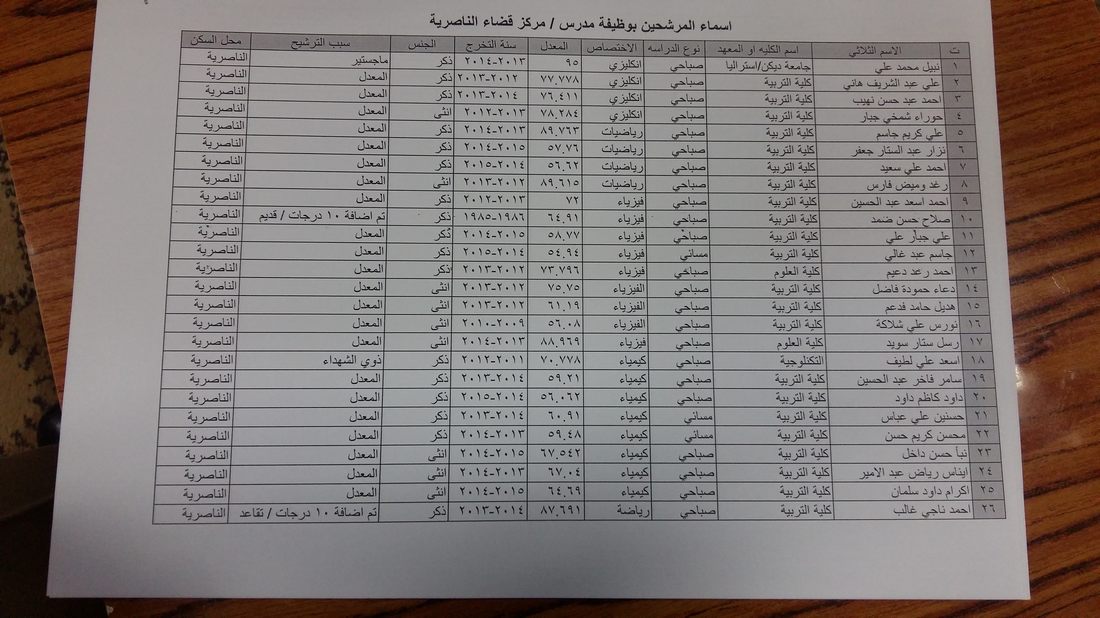 اسماء المرشحين بوظيفة مدرس / مركز قضاء الناصرية
ت الاسم الثلاثي اسم الكليه او المعهد نوع الدراسه الاختصاص المعدل سنة التخرج الجنس سبب الترشيح محل السكن
١ نبيل محمد علي جامعة ديكن/استراليا صباحي انكليزي ٩٥ ٢٠١٣-٢٠١٤ ذكر ماجستير الناصرية
٢ علي عبد الشريف هاني كلية التربية صباحي انكليزي ٧٧,٧٧٨ ٢٠١٢-٢٠١٣ ذكر المعدل الناصرية
٣ احمد عبد حسن نهيب كلية التربية صباحي انكليزي ٧٦,٤١١ ٢٠١٤-٢٠١٣ ذكر المعدل الناصرية
٤ حوراء شمخي جبار كلية التربية صباحي انكليزي ٧٨,٢٨٤ ٢٠١٣-٢٠١٢ انثى المعدل الناصرية
٥ علي كريم جاسم كلية التربية صباحي رياضيات ٨٩,٧٦٣ ٢٠١٣-٢٠١٤ ذكر المعدل الناصرية
٦ نزار عبد الستار جعفر كلية التربية صباحي رياضيات ٥٧,٧٦ ٢٠١٥-٢٠١٤ ذكر المعدل الناصرية
٧ احمد علي سعيد كلية التربية صباحي رياضيات ٥٦,٦٢ ٢٠١٤-٢٠١٥ ذكر المعدل الناصرية
٨ رغد وميض فارس كلية التربية صباحي رياضيات ٨٩,٦١٥ ٢٠١٢-٢٠١٣ انثى المعدل الناصرية
٩ احمد اسعد عبد الحسين كلية التربية صباحي فيزياء ٧٢ ٢٠١٣-٢٠١٢ ذكر المعدل الناصرية
١٠ صلاح حسن ضمد كلية التربية صباحي فيزياء ٦٤,٩١ ١٩٨٦-١٩٨٥ ذكر تم اضافة ١٠ درجات / قديم الناصرية
١١ علي جبار علي كلية التربية صباحي فيزياء ٥٨,٧٧ ٢٠١٥-٢٠١٤ ذكر المعدل الناصرية
١٢ جاسم عبد غالي كلية التربية مسائي فيزياء ٥٤,٩٤ ٢٠١٤-٢٠١٥ ذكر المعدل الناصرية
١٣ احمد رعد دعيم كلية العلوم صباحي فيزياء ٧٣,٧٩٦ ٢٠١٢-٢٠١٣ ذكر المعدل الناصرية
١٤ دعاء حمودة فاضل كلية التربية صباحي الفيزياء ٧٥,٧٥ ٢٠١٢-٢٠١٣ انثى المعدل الناصرية
١٥ هديل حامد فدعم كلية التربية صباحي الفيزياء ٦١,١٩ ٢٠١٢-٢٠١٣ انثى المعدل الناصرية
١٦ نورس علي شلاكة كلية التربية صباحي الفيزياء ٥٦,٠٨ ٢٠٠٩-٢٠١٠ انثى المعدل الناصرية
١٧ رسل ستار سويد كلية العلوم صباحي فيزياء ٨٨,٩٦٩ ٢٠١٣-٢٠١٤ انثى المعدل الناصرية
١٨ اسعد علي لطيف التكنلوجية صباحي كيمياء ٧٠,٧٧٨ ٢٠١١-٢٠١٢ ذكر ذوي الشهداء الناصرية
١٩ سامر فاخر عبد الحسين كلية التربية صباحي كيمياء ٥٩,٢١ ٢٠١٤-٢٠١٣ ذكر المعدل الناصرية
٢٠ داود كاظم داود كلية التربية صباحي كيمياء ٥٦,٠٦٢ ٢٠١٤-٢٠١٥ ذكر المعدل الناصرية
٢١ حسنين علي عباس كلية التربية مسائي كيمياء ٦٠,٩١ ٢٠١٤-٢٠١٣ ذكر المعدل الناصرية
٢٢ محسن كريم حسن كلية التربية مسائي كيمياء ٥٩,٤٨ ٢٠١٣-٢٠١٤ ذكر المعدل الناصرية
٢٣ نبأ حسن داخل كلية التربية صباحي كيمياء ٦٧,٥٤٢ ٢٠١٥-٢٠١٤ انثى المعدل الناصرية
٢٤ ايناس رياض عبد الامير كلية التربية صباحي كيمياء ٦٧,٠٤ ٢٠١٣-٢٠١٤ انثى المعدل الناصرية
٢٥ اكرام داود سلمان كلية التربية صباحي كيمياء ٦٤,٦٩ ٢٠١٥-٢٠١٤ انثى المعدل الناصرية
٢٦ احمد ناجي غالب كلية التربية صباحي رياضة ٨٧,٦٩١ ٢٠١٤-٢٠١٣ ذكر تم اضافة ١٠ درجات / تقاعد الناصرية